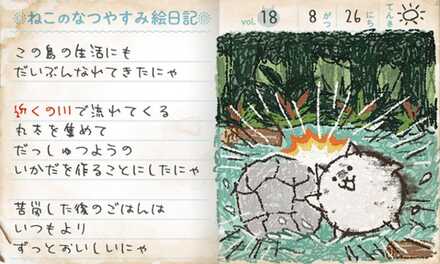 ねこのなつやすみ絵日記
VOL. 18 8がつ 26にち てんき
この島の生活にも
だいぶんなれてきたにゃ
近くの川で流れてくる
丸太を集めて
だっしゅつようの
いかだを作ることにしたにゃ
苦労した後のごはんは
いつもより
ずっとおいしいにゃ